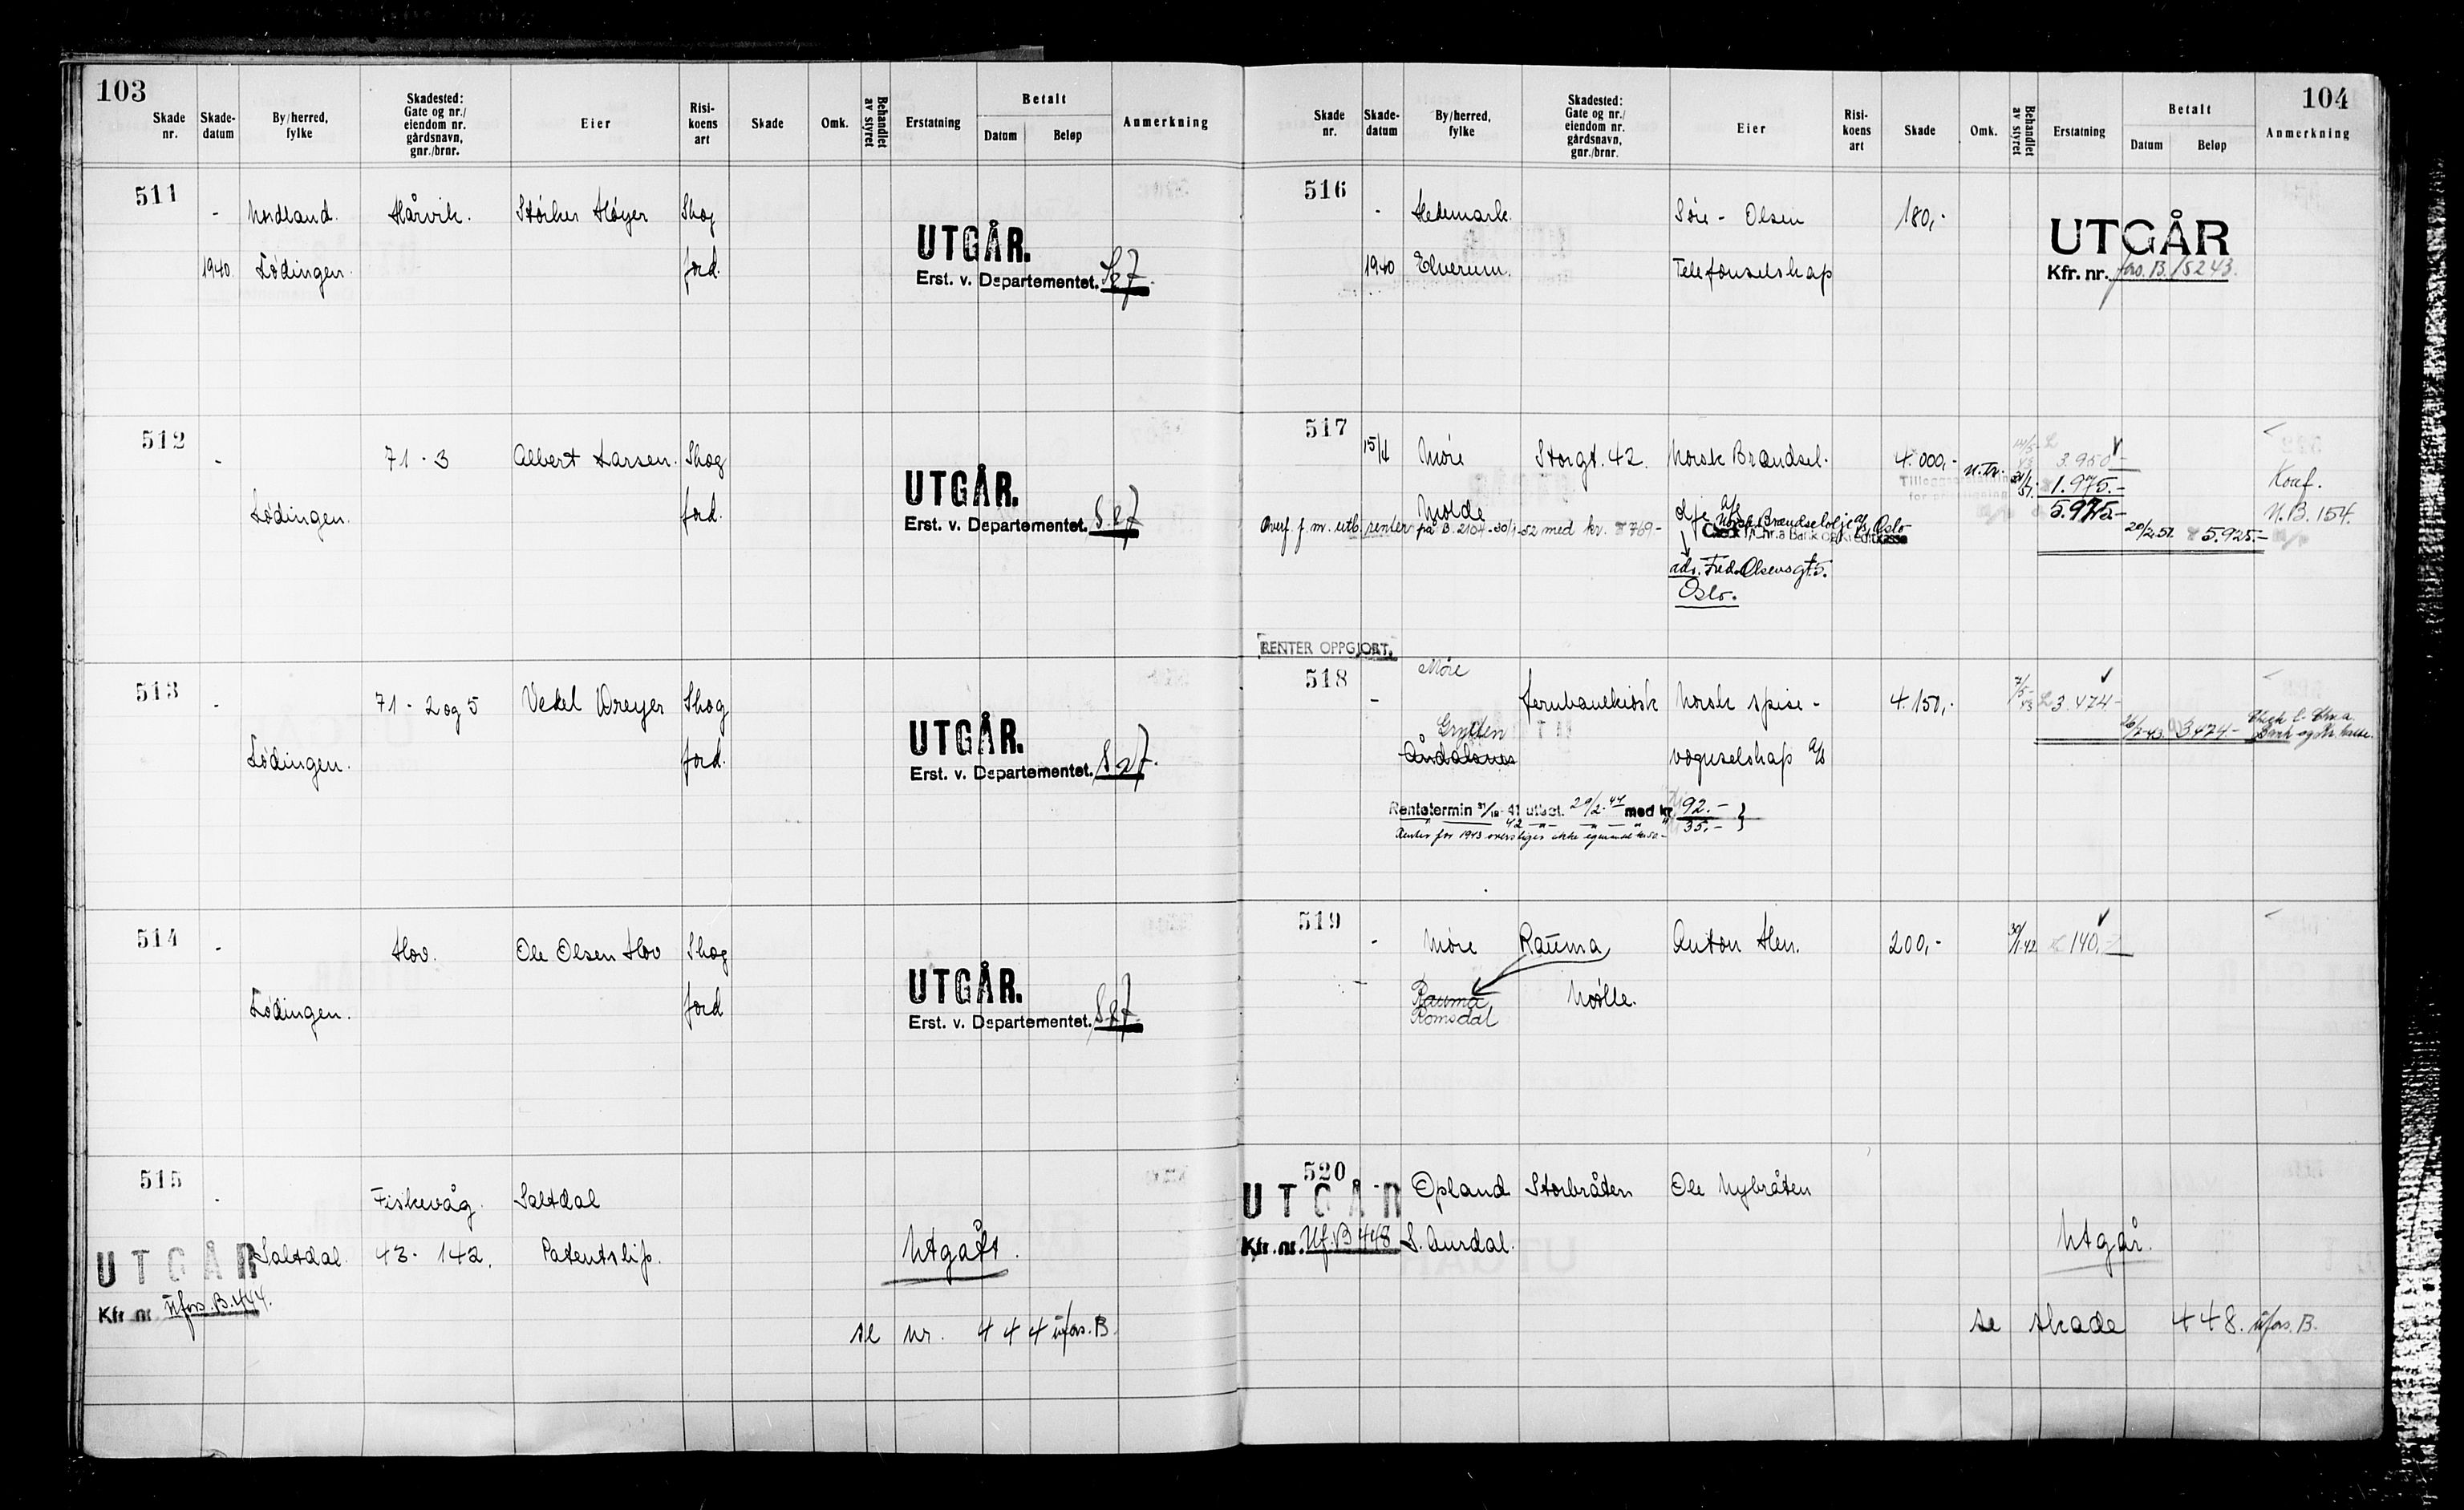 103
Skade nr. Skade-datum By/herred, fylke Skadested: Gate og nr./ eiendom nr. gårdsnavn, gnr./brnr. Eier Risi-koens art Skade Omk. Behandlet av styret Erstatning Betalt Datum Beløp Anmerkning
511 - Nordland. Hårvik. Størker Høyer Skog
1940. Lödingen. jord.
UTGÅR.
Erst. v. Departementet.
512 - 71 - 3 Albert Larsen. Skog
Lödingen. jord.
UTGÅR.
Erst. v. Departementet.
513 - 71 - 2 og 5 Vekel Dreyer Skog
Lödingen. jord.
UTGÅR.
Erst. v. Departementet.
514 - Hov. Ole Olsen Hov Skog
Lödingen. jord
UTGÅR.
Erst. v. Departementet.
515 - Fiskevåg. Saltdal
Saltdal. 43 - 142. Patentslip. Utgått.
UTGÅR
Kfr. nr. Ufors. B. 444.
se nr. 444 ufors. B.
104
Skade nr. Skade-datum By/herred, fylke Skadested: Gate og nr./ eiendom nr. gårdsnavn, gnr./brnr. Eier Risi-koens art Skade Omk. Behandlet av styret Erstatning Betalt Datum Beløp Anmerkning
516 - Hedemark. Söre - Olsen 180,-
1940 Elverum. Telefonselskap
UTGÅR
Kfr. nr. fors. B. 15243.
517 15/4 Möre Storgt. 42. Norsk Brændsel- 4.000,- n.tr. 3.950-
Tilleggserstatning
1.975.- Konf.
Molde olje a/s 5.975- N.B. 154.
Norsk Brændselolje a/s, Oslo
Overf. f. m. utb. renter på B. 2164 - 30/1-52 med kr. 769-
20/2.51. 5.925.-
adr. Fred Olsensgt. 5.
Oslo.
RENTER OPPGJORT.
518 Möre
- Jernbanekiosk Norsk spise- 4.150,- 7/5-43 3.474-
Grytten
Åndalsnes vognselskap a/s 3474-
Rentetermin 31/12-41 utbet. 29/2.44 med kr. 92.-
42 35.-
Renter for 1943 overstiger ikke
519 - Möre Rauma Anton Hen. 200,- 30/1.42 140,-
Rauma Mölle.
Romsdal
520 - Opland Storbråten Ole Nybråten
UTGÅR
Kfr. nr. Uf. B 448 S. Aurdal. Utgår.
se skade 448. ufors. B.